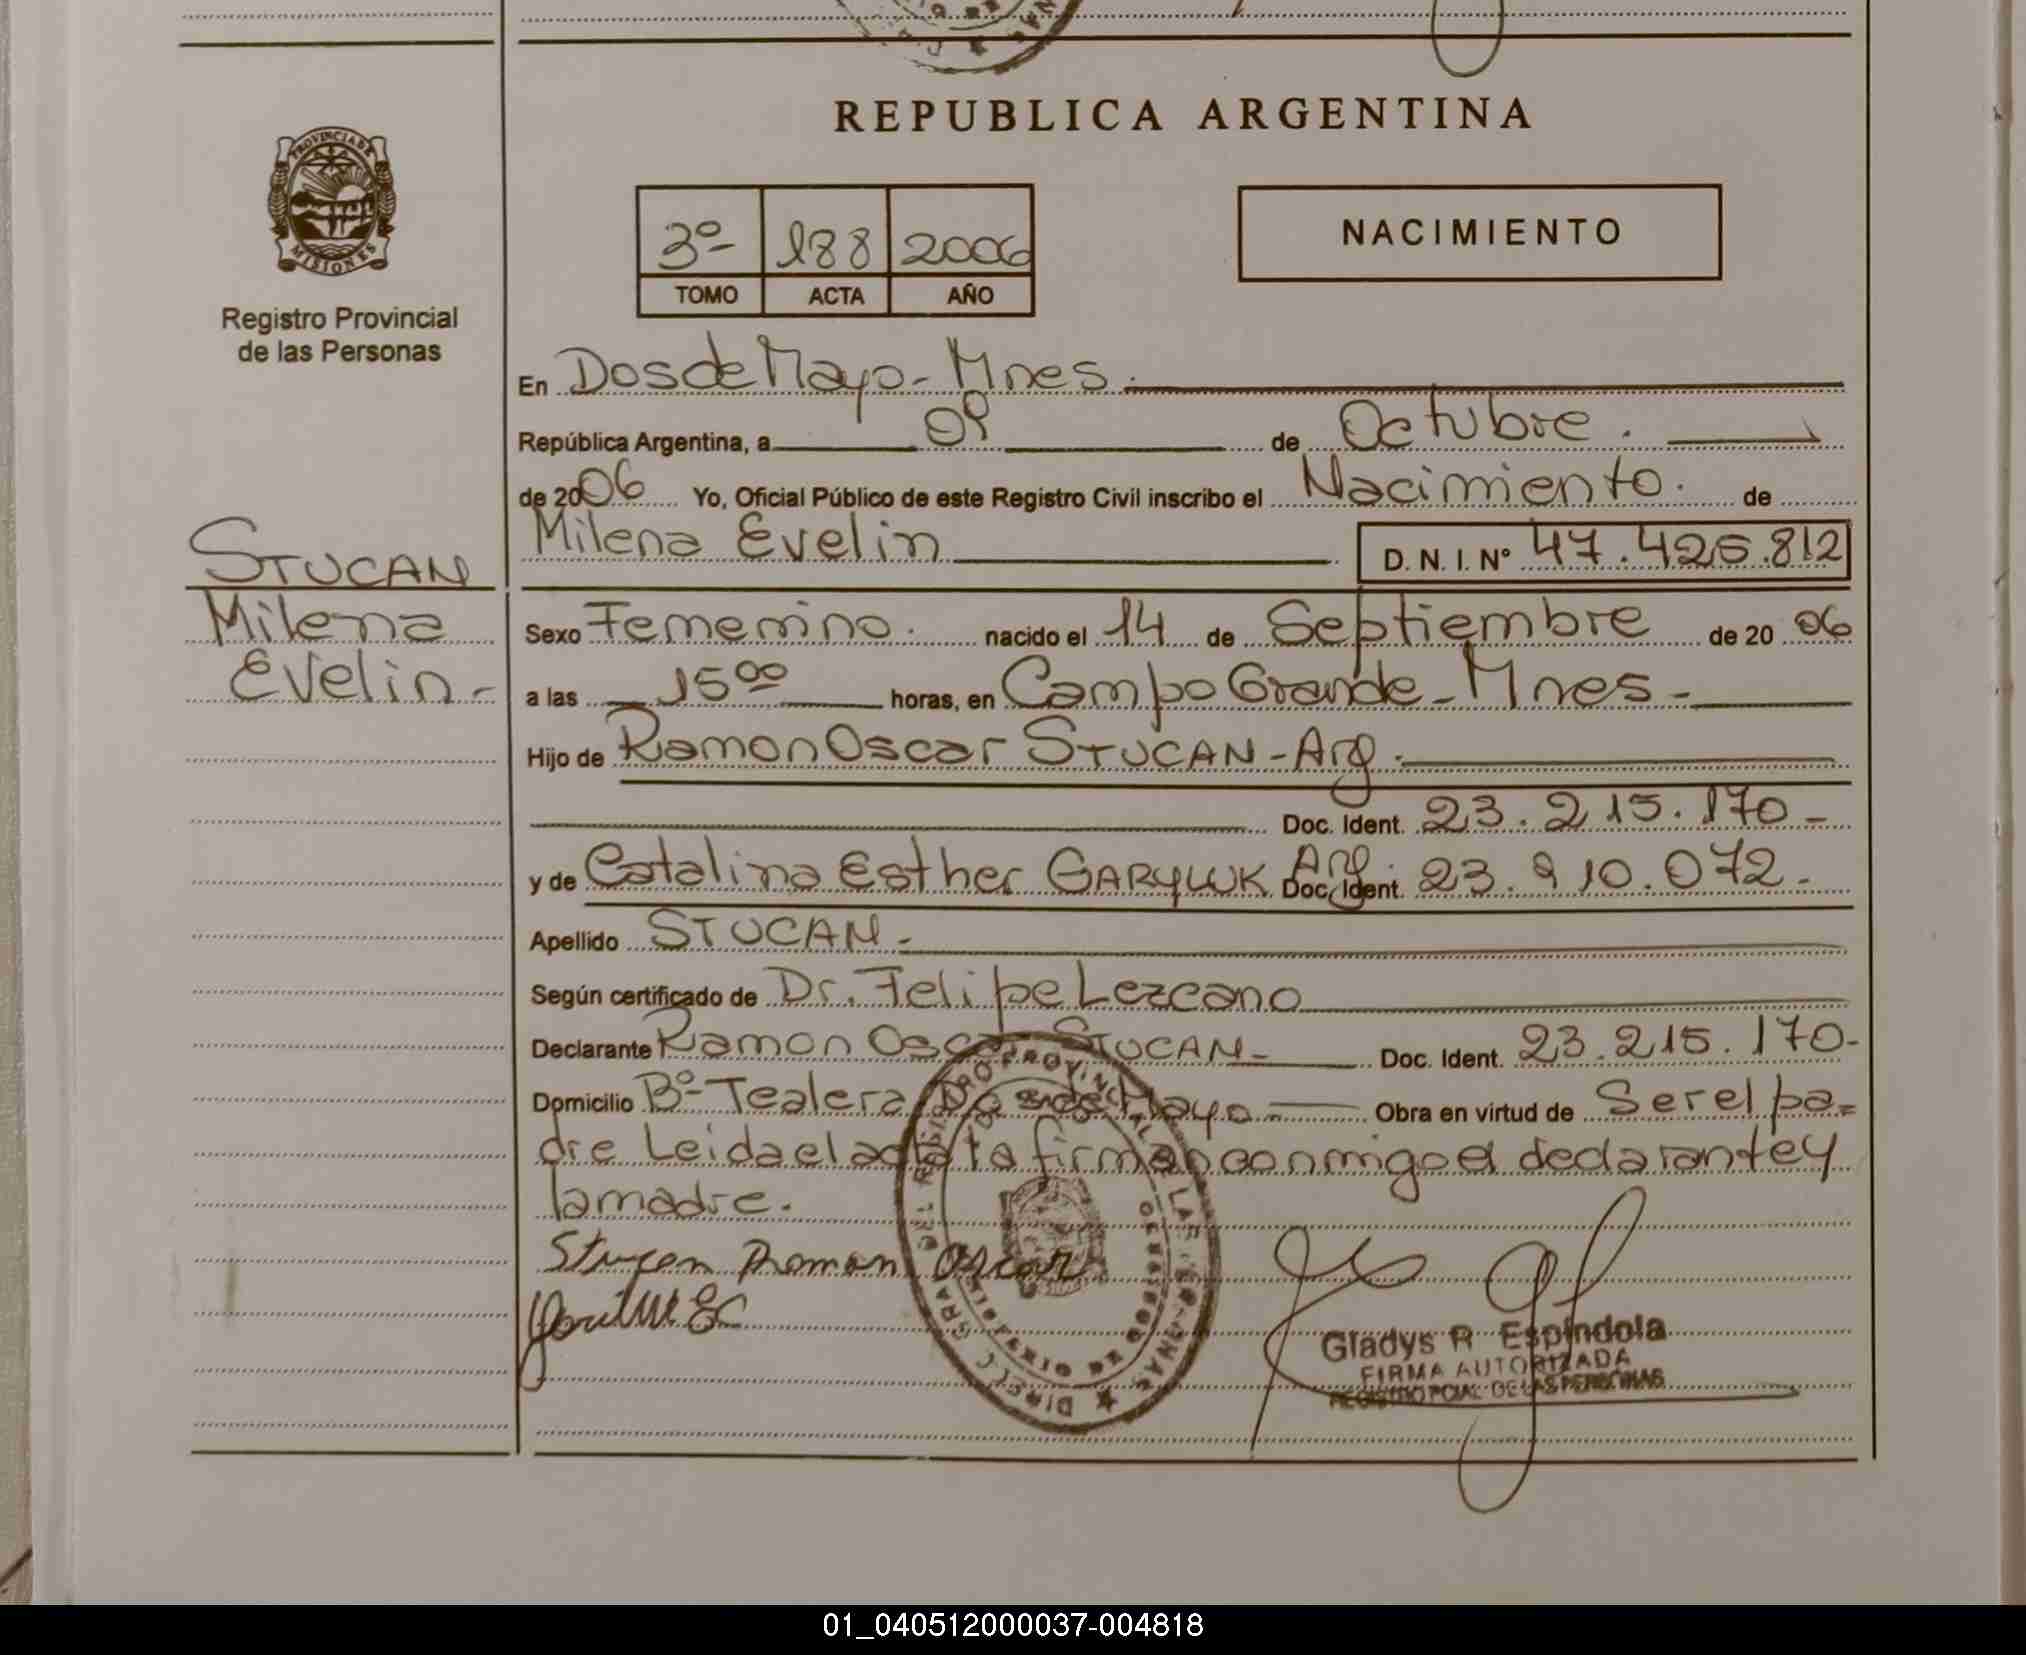 REPUBLICA ARGENTINA
PROVINCIA DE
MISIONES
Registro Provincial
de las Personas
3º 188 2006
TOMO ACTA AÑO
NACIMIENTO
En Dos de Mayo - Mnes.
República Argentina, a de Octubre.
de 2006 Yo, Oficial Público de este Registro Civil inscribo el Nacimiento. de
Milena Evelin D. N. I. Nº 47.425.812
STUCAN
Milena
Evelin -
Sexo Femenino. nacido el 14 de Septiembre de 20 06
a las 15 00 horas, en Campo Grande - Mnes -
Hijo de Ramon Oscar STUCAN - Arg.
Doc. Ident. 23.215.170 -
y de Catalina Esther GARYLUK Arg. Doc. Ident. 23. 210.072 -
Apellido STUCAN -
Según certificado de Dr. Felipe Lezcano
Declarante Ramon Oscar STUCAN - Doc. Ident. 23.215.170 -
Domicilio Bº Tealera Dos de Mayo - Obra en virtud de Ser el pa=
dre Leida el acta firman conmigo el declarante y
la madre.
Stucan Ramon Oscar
Gladys R. Espindola
FIRMA AUTORIZADA
REGISTRO PCIAL. DE LAS PERSONAS
01_040512000037-004818